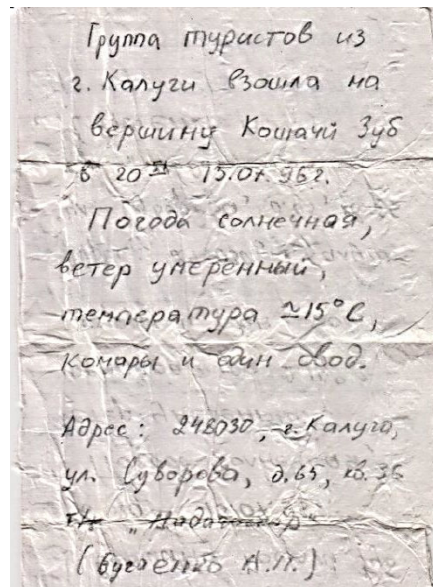 Группа туристов из
г. Калуги взошла на
вершину Кошачий Зуб
в 20 13.07.96г.
Погода солнечная,
ветер умеренный,
температура ≈15°С,
комары и один овод.
Адрес: 248030, г. Калуга,
ул. Суворова, д.65, кв.36
(Бугаенко А.П.)